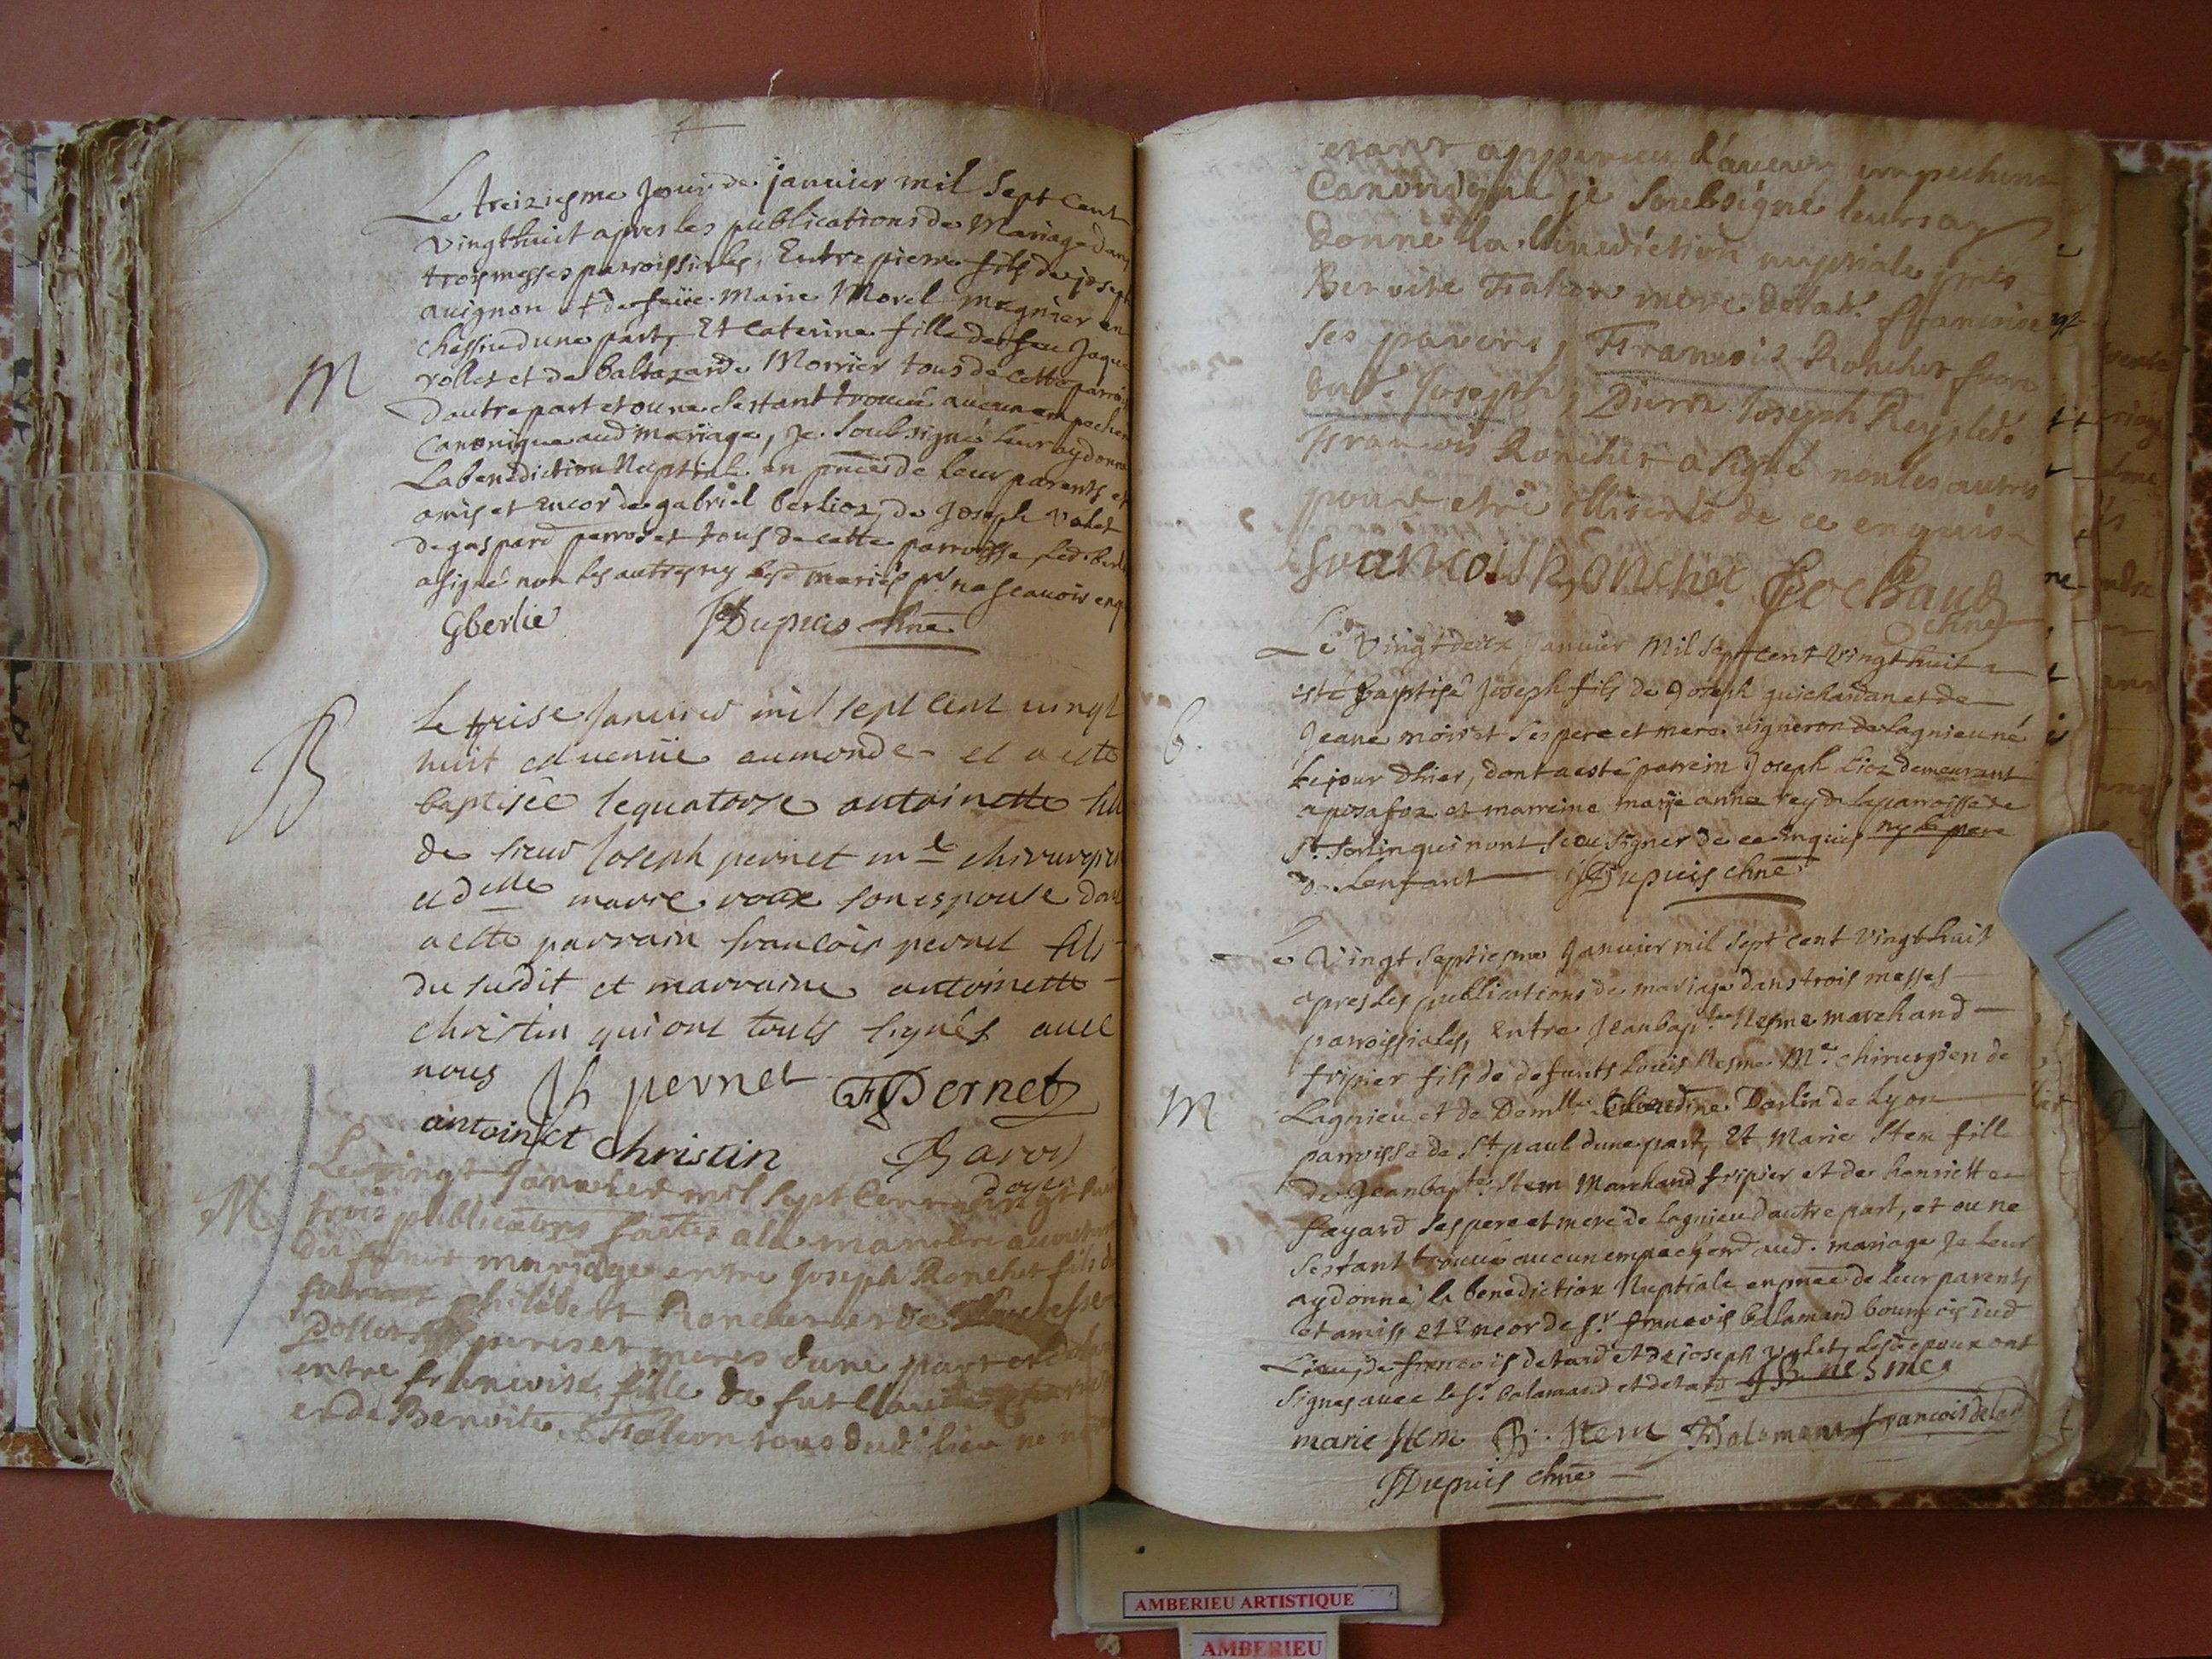 Le treiziesme Jour de janvier mil Sept Cent
vingthuit apres les publications de Mariage dans
trois messes parroissiales, Entre pierre fils de joseph
avignon et de feüe Marie Morel
dune part, Et Caterine fille de feu Jaque
rollet et de baltazarde Morrier tous de cette parroi
M
dautre part et ou ne sestant trouvé aucun empechem
Canonique aud mariage, Je Soubsigné leur aydonné
La benediction Nuptiale en pnce de leur parents et
amis et Encor de gabriel berlioz, de Joseph valet
de gaspard perrodet tous de cette parroisse led. berl
a signé non les autres ny lesd mariés pr ne scavoir enq
Gberlie JDupuis chne
B
Le treise Janvier mil sept cent vingt
huit est venüe au monde et a este
baptisée le quatorse antoinette fill
de sieur Joseph pernet me chirurgien
et delle marie roux son espouse dont
a este parrain francois pernet fils
du susdit et marraine antoinette
christin qui ont touts signés avec
nous Jh pernet F Pernet
antoinet christin
M
Le vingt Janvier mil sept Cent vingt huit
trois publications faites a la maniere accoutum
du futur mariage entre Joseph Ronchet fils de
philibert Ronchet et de
peres et meres d'une part et
entre francoise fille de fut Claude
et de Benoite Falcon tous dud. lieu ne
etant apparu d'aucun empechem
Canonique je Soubsigné leurs ay
donné la benediction nuptiale prts
Benoite Falcon mere de lad. francoise
ses parens, Francois Ronchet frere
dud. Joseph, Pierre Joseph Rey led.
Francois Ronchet a signé non les autres
pour etre illiterés de ce enquis
francois Ronchet Cochaud
chne
Le Vingt deux Janvier Mil Sept cent Vingt huit a
esté baptisé Joseph fils de Joseph guichardan et de
b.
Jeane moiret Ses pere et mere vigneron de lagnieu né
le jour dhier, dont a esté parrein Joseph Lioz demeurant
a posafoz et marreine marie anne rey de la parroisse de
St. Sorlin qui nont Sceu Signer de ce enquis ny le pere
d. Lenfant JDupuis chne
Le Vingt Septiesme Janvier mil Sept cent Vingthuit
apres les publications de mariage dans trois messes
parroissiales, Entre Jeanbapte. Nesme marchand
fripier fils de defunts Louis Nesme Me. chirurgien de
M
Lagnieu et de Demlle Claudine Darlin de Lyon
parroisse de St paul dune part, Et Marie Stem fille
de Jeanbapte. Stem Marchand fripier et de henriette
fayard Ses pere et mere de lagnieu dautre part, et ou ne
Sestant trouvé aucun empechemt aud. mariage Je leur
aydonné la benediction Nuptiale en pnce de leur parents
et amis, et Encor de Sr. francois balamand bourgeois dud
Lieu, de francois detard et de joseph valet, lesd epoux ont
Signes avec le Sr. balamand et detard JB nesme
marie Stem B. Stem Balamand francois detard
JDupuis chne
AMBERIEU ARTISTIQUE
AMBERIEU